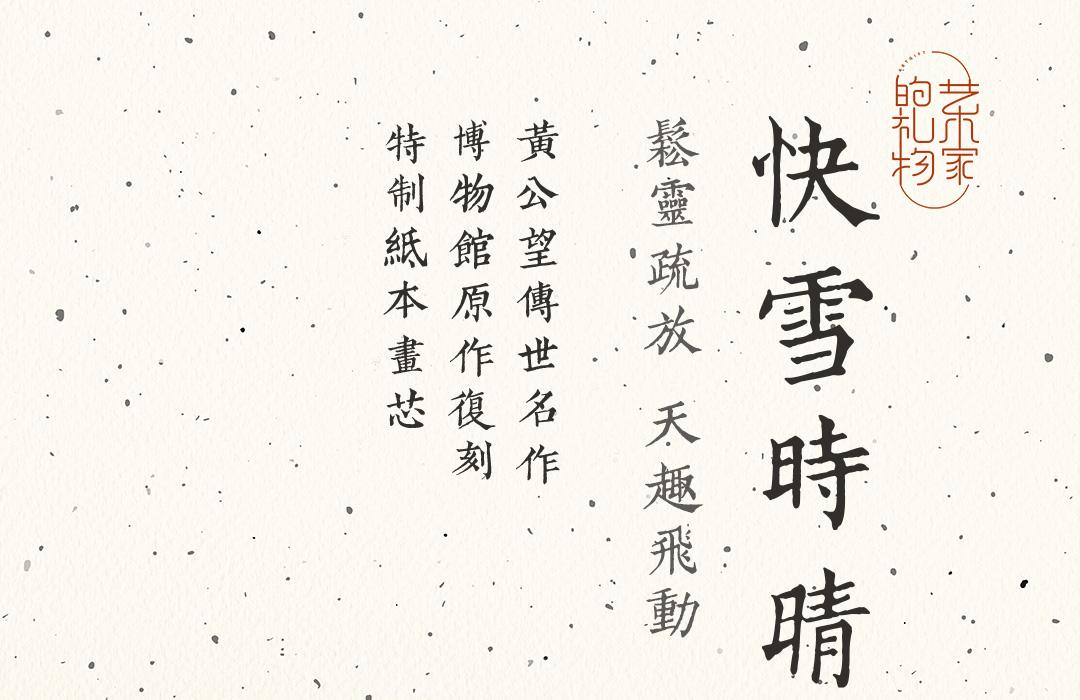 艺术家
的礼物
快雪時晴
鬆靈疏放 天趣飛動
黃公望傳世名作
博物館原作復刻
特制紙本畫芯